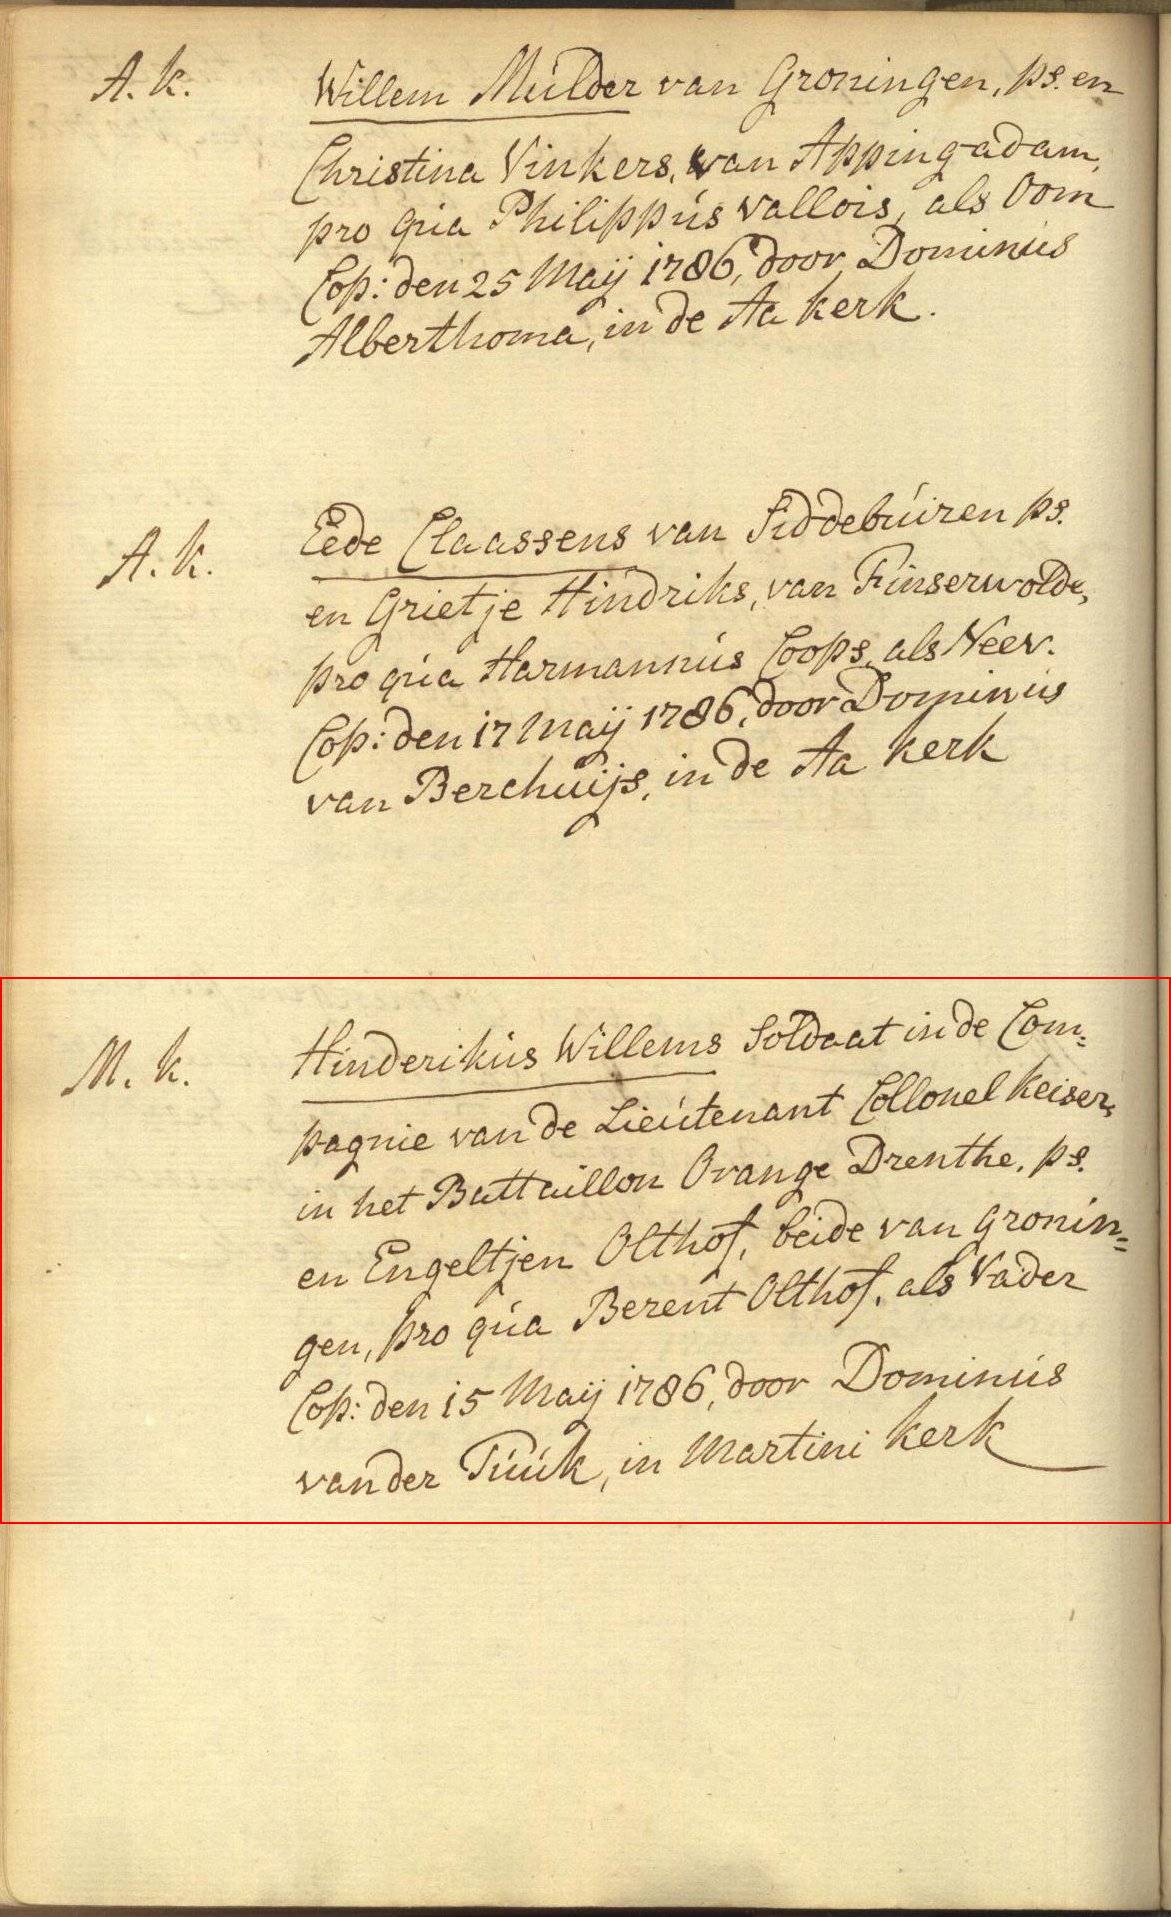 A. k. Willem Mulder van Groningen, ps. en
Christina Vinkers, van Appingadam,
pro qua Philippus Vallois, als Oom
Cop: den 25 Maij 1786, door Dominus
Alberthoma, in de Aa kerk.
A. k. Eede Claassens van Siddebuiren ps.
en Grietje Hindriks, van Finserwolde,
pro qua Harmannus Coops, als Neev.
Cop: den 17 Maij 1786, door Dominus
van Berchuijs, in de Aa kerk
M. k. Hinderikus Willems Soldaat in de Com=
pagnie van de Lieutenant Collonel Keiser,
in het Battaillon Orange Drenthe, ps.
en Engeltjen Olthof, beide van Gronin=
gen, pro qua Berent Olthof, als Vader
Cop: den 15 Maij 1786, door Dominus
van der Tuuk, in Martini kerk